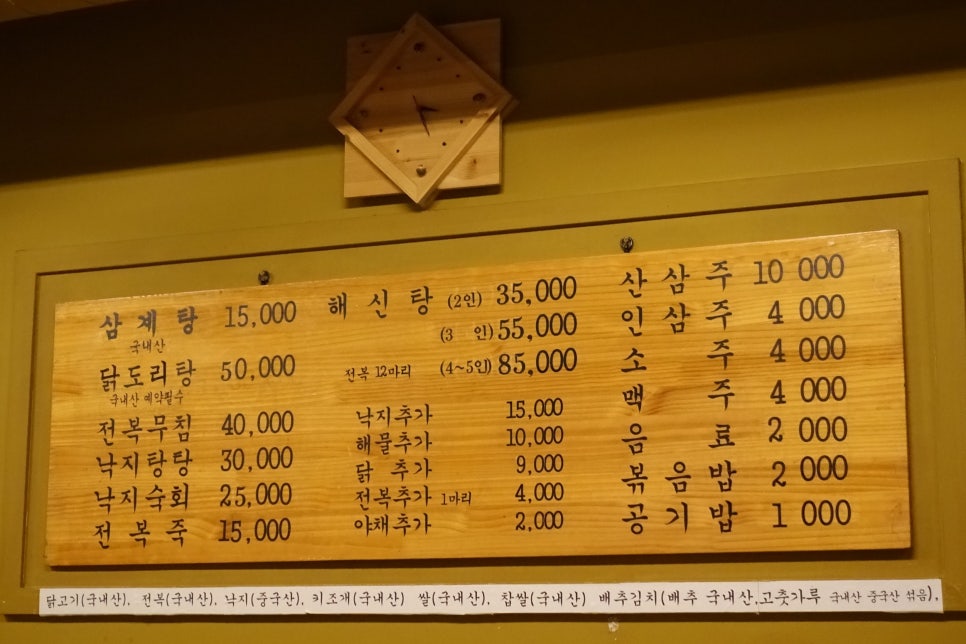 삼계탕 15,000
국내산
닭도리탕 50,000
국내산 예약필수
전복무침 40,000
낙지탕탕 30,000
낙지숙회 25,000
전복죽 15,000
해신탕 (2인) 35,000
(3 인) 55,000
전복 12마리 (4~5인) 85,000
낙지추가 15,000
해물추가 10,000
닭 추가 9,000
전복추가 1마리 4,000
야채추가 2,000
산삼주 10 000
인삼주 4 000
소주 4 000
맥주 4 000
음료 2 000
볶음밥 2 000
공기밥 1 000
닭고기(국내산), 전복(국내산), 낙지(중국산), 키조개(국내산) 쌀(국내산), 찹쌀(국내산) 배추김치(배추 국내산,고춧가루 국내산 중국산 섞음),